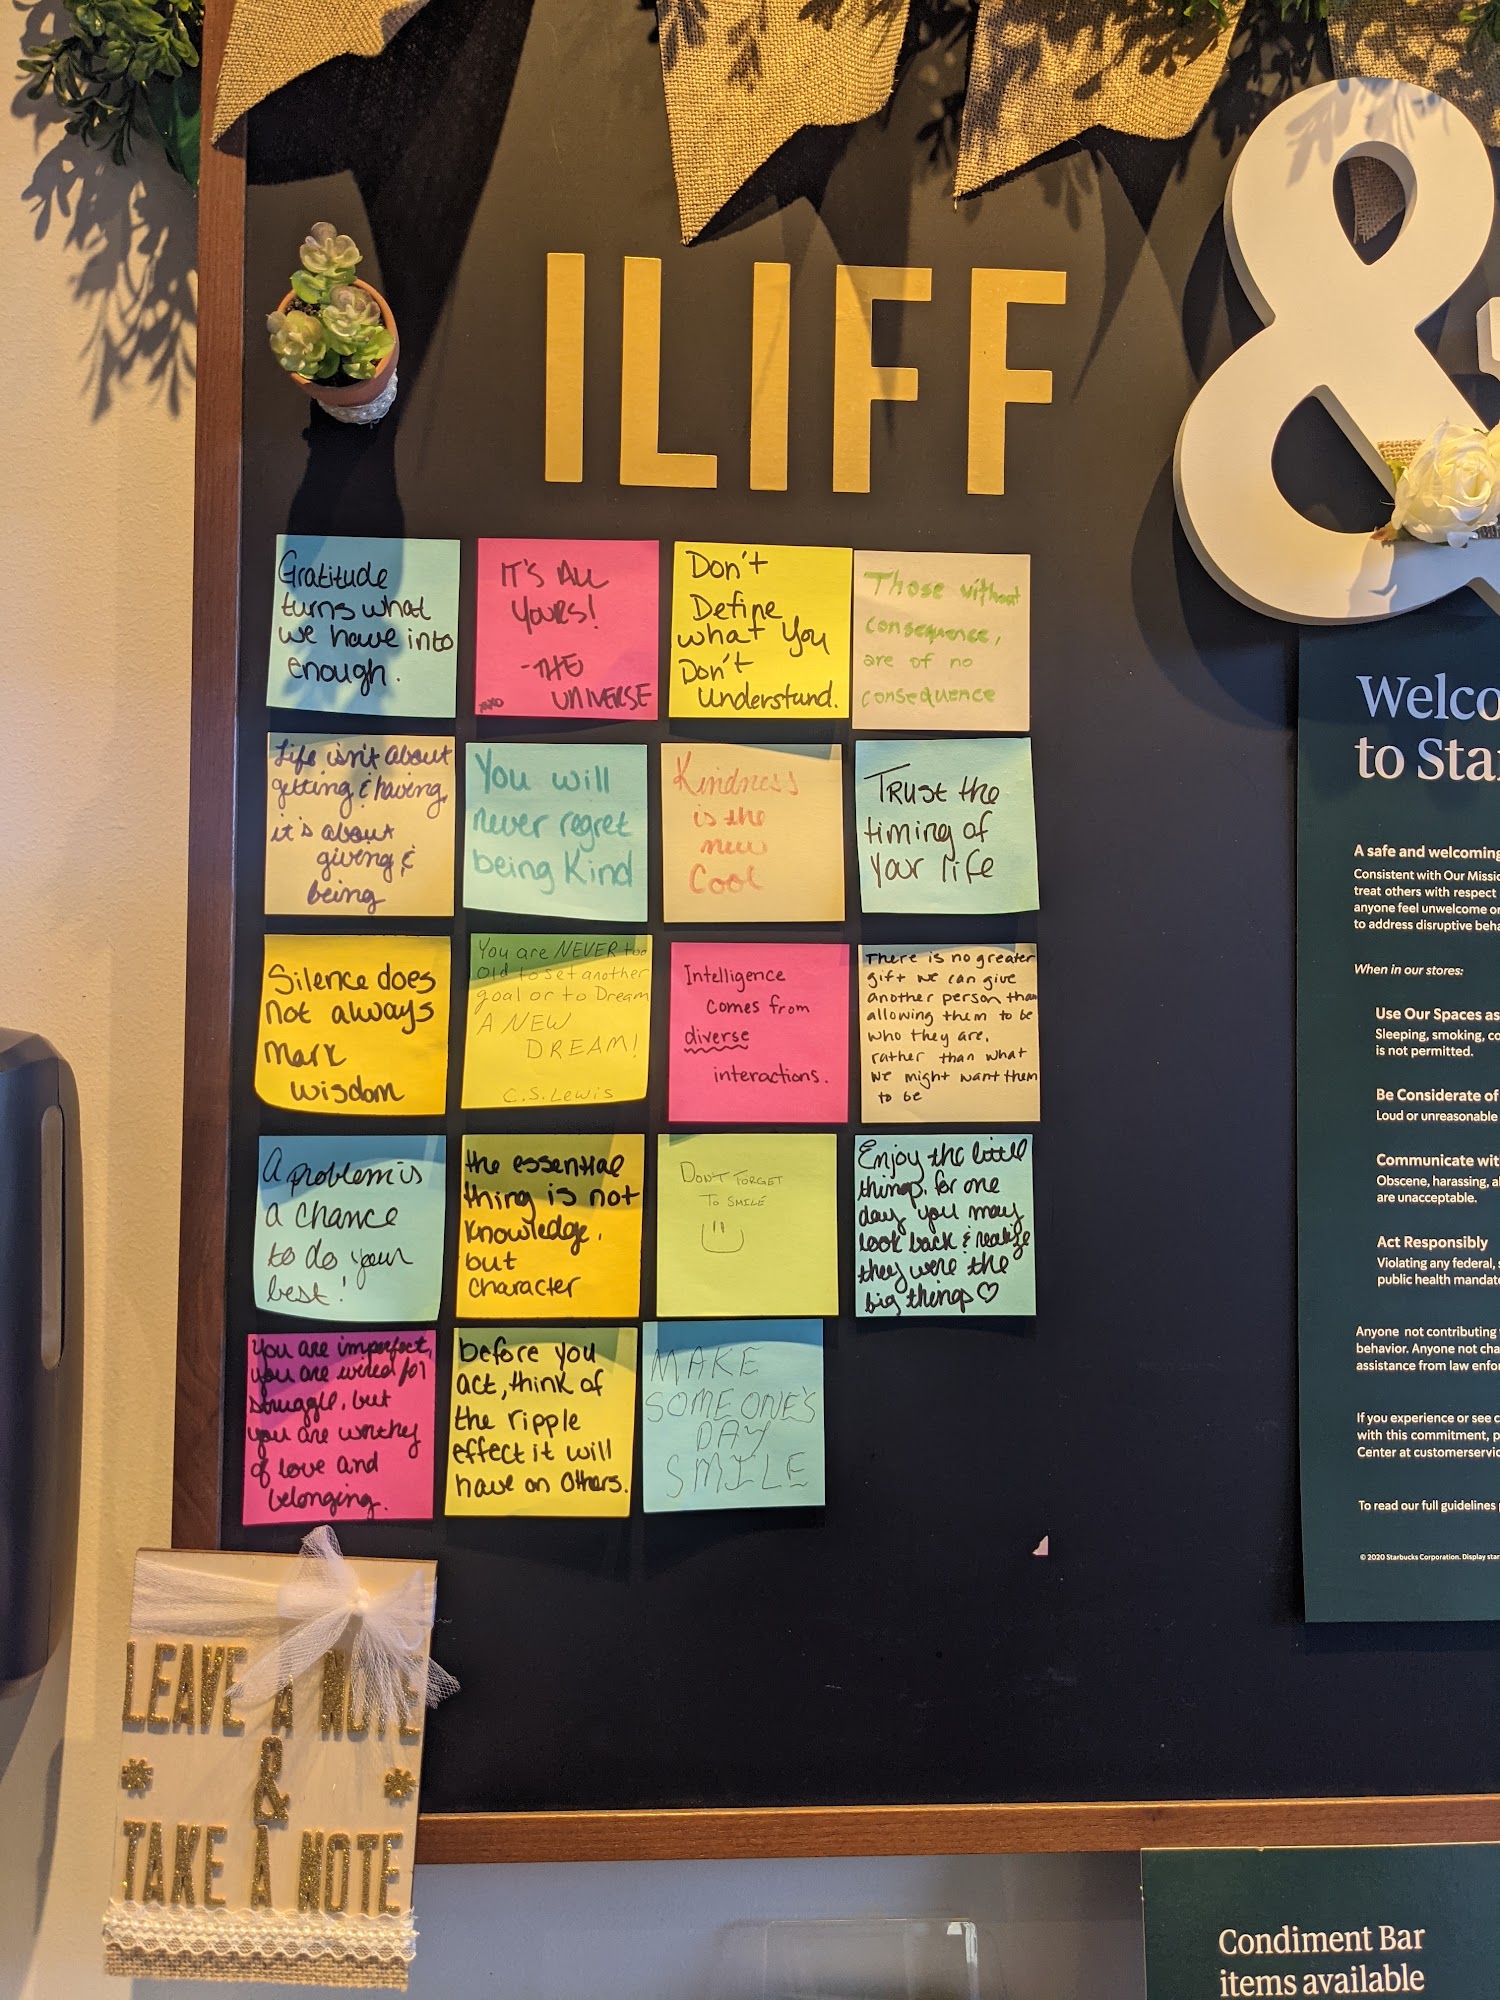 ILIFF
&
Gratitude
turns what
we have into
enough.
IT'S ALL
YOURS!
-THE
UNIVERSE
XOXO
Don't
Define
what you
Don't
Understand.
Those without
consequence,
are of no
consequence
Life isn't about
getting & having,
it's about
giving &
being
You will
never regret
being Kind
Kindness
is the
new
Cool
Trust the
timing of
Your life
Silence does
not always
mark
wisdom
You are NEVER too
old to set another
goal or to Dream
A NEW
DREAM!
C.S. Lewis
Intelligence
comes from
diverse
interactions.
There is no greater
gift we can give
another person than
allowing them to be
who they are,
rather than what
we might want them
to be
A problem is
a chance
to do your
best!
the essential
thing is not
knowledge,
but
character
DON'T FORGET
TO SMILE
Enjoy the little
things, for one
day you may
look back & realize
they were the
big things ♡
You are imperfect,
you are wired for
struggle, but
you are worthy
of love and
belonging.
before you
act, think of
the ripple
effect it will
have on others.
MAKE
SOMEONE'S
DAY
SMILE
LEAVE A NOTE
&
TAKE A NOTE
Welco
to Sta
A safe and welcoming
Consistent with Our Missio
treat others with respect
anyone feel unwelcome or
to address disruptive beha
When in our stores:
Use Our Spaces as
Sleeping, smoking, co
is not permitted.
Be Considerate of
Loud or unreasonable
Communicate wit
Obscene, harassing, a
are unacceptable.
Act Responsibly
Violating any federal, s
public health mandat
Anyone not contributing
behavior. Anyone not cha
assistance from law enfor
If you experience or see c
with this commitment, p
Center at customerservic
To read our full guidelines
© 2020 Starbucks Corporation. Display star
Condiment Bar
items available